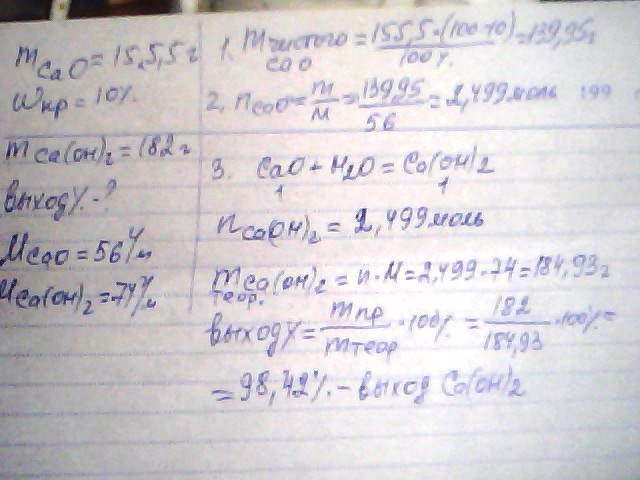 mCaO = 15,5,5 г
wпр = 10%
mCa(OH)2 = 182 г
выход% - ?
MCaO = 56 г/м
MCa(OH)2 = 74 г/м
1. mчистого CaO = 155,5·(100-10)/100% = 139,95 г
2. nCaO = m/M = 139,95/56 = 2,499 моль 199
3. CaO + H2O = Ca(OH)2
1 1
nCa(OH)2 = 2,499 моль
mCa(OH)2 теор. = n·M = 2,499·74 = 184,93 г
выход% = mпр/mтеор ·100% = 182/184,93 ·100% =
= 98,42% - выход Ca(OH)2